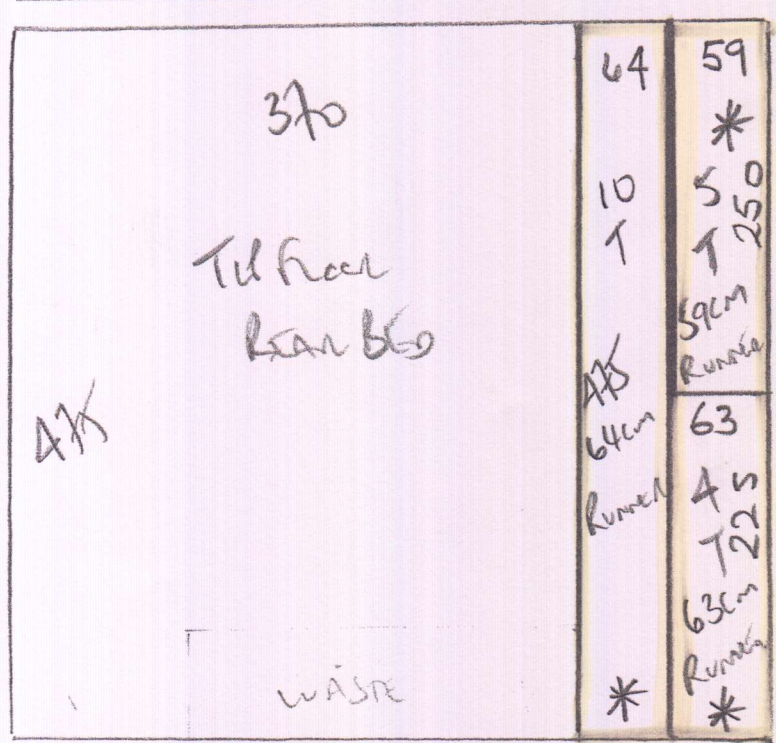 370
REAR BED
475
WASTE
64
10
T
475
64cm
RUNNER
*
59
*
5
T
250
59cm
RUNNER
63
4
T
225
63cm
RUNNER
*